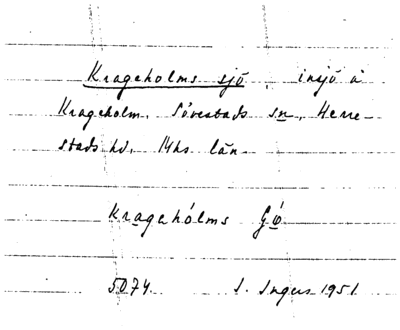 Krageholms sjö, insjö å
Krageholm. Sövestads sn, Herre-
stads hd. Mhs län.
Kragehólms
5074. I. Ingers 1951